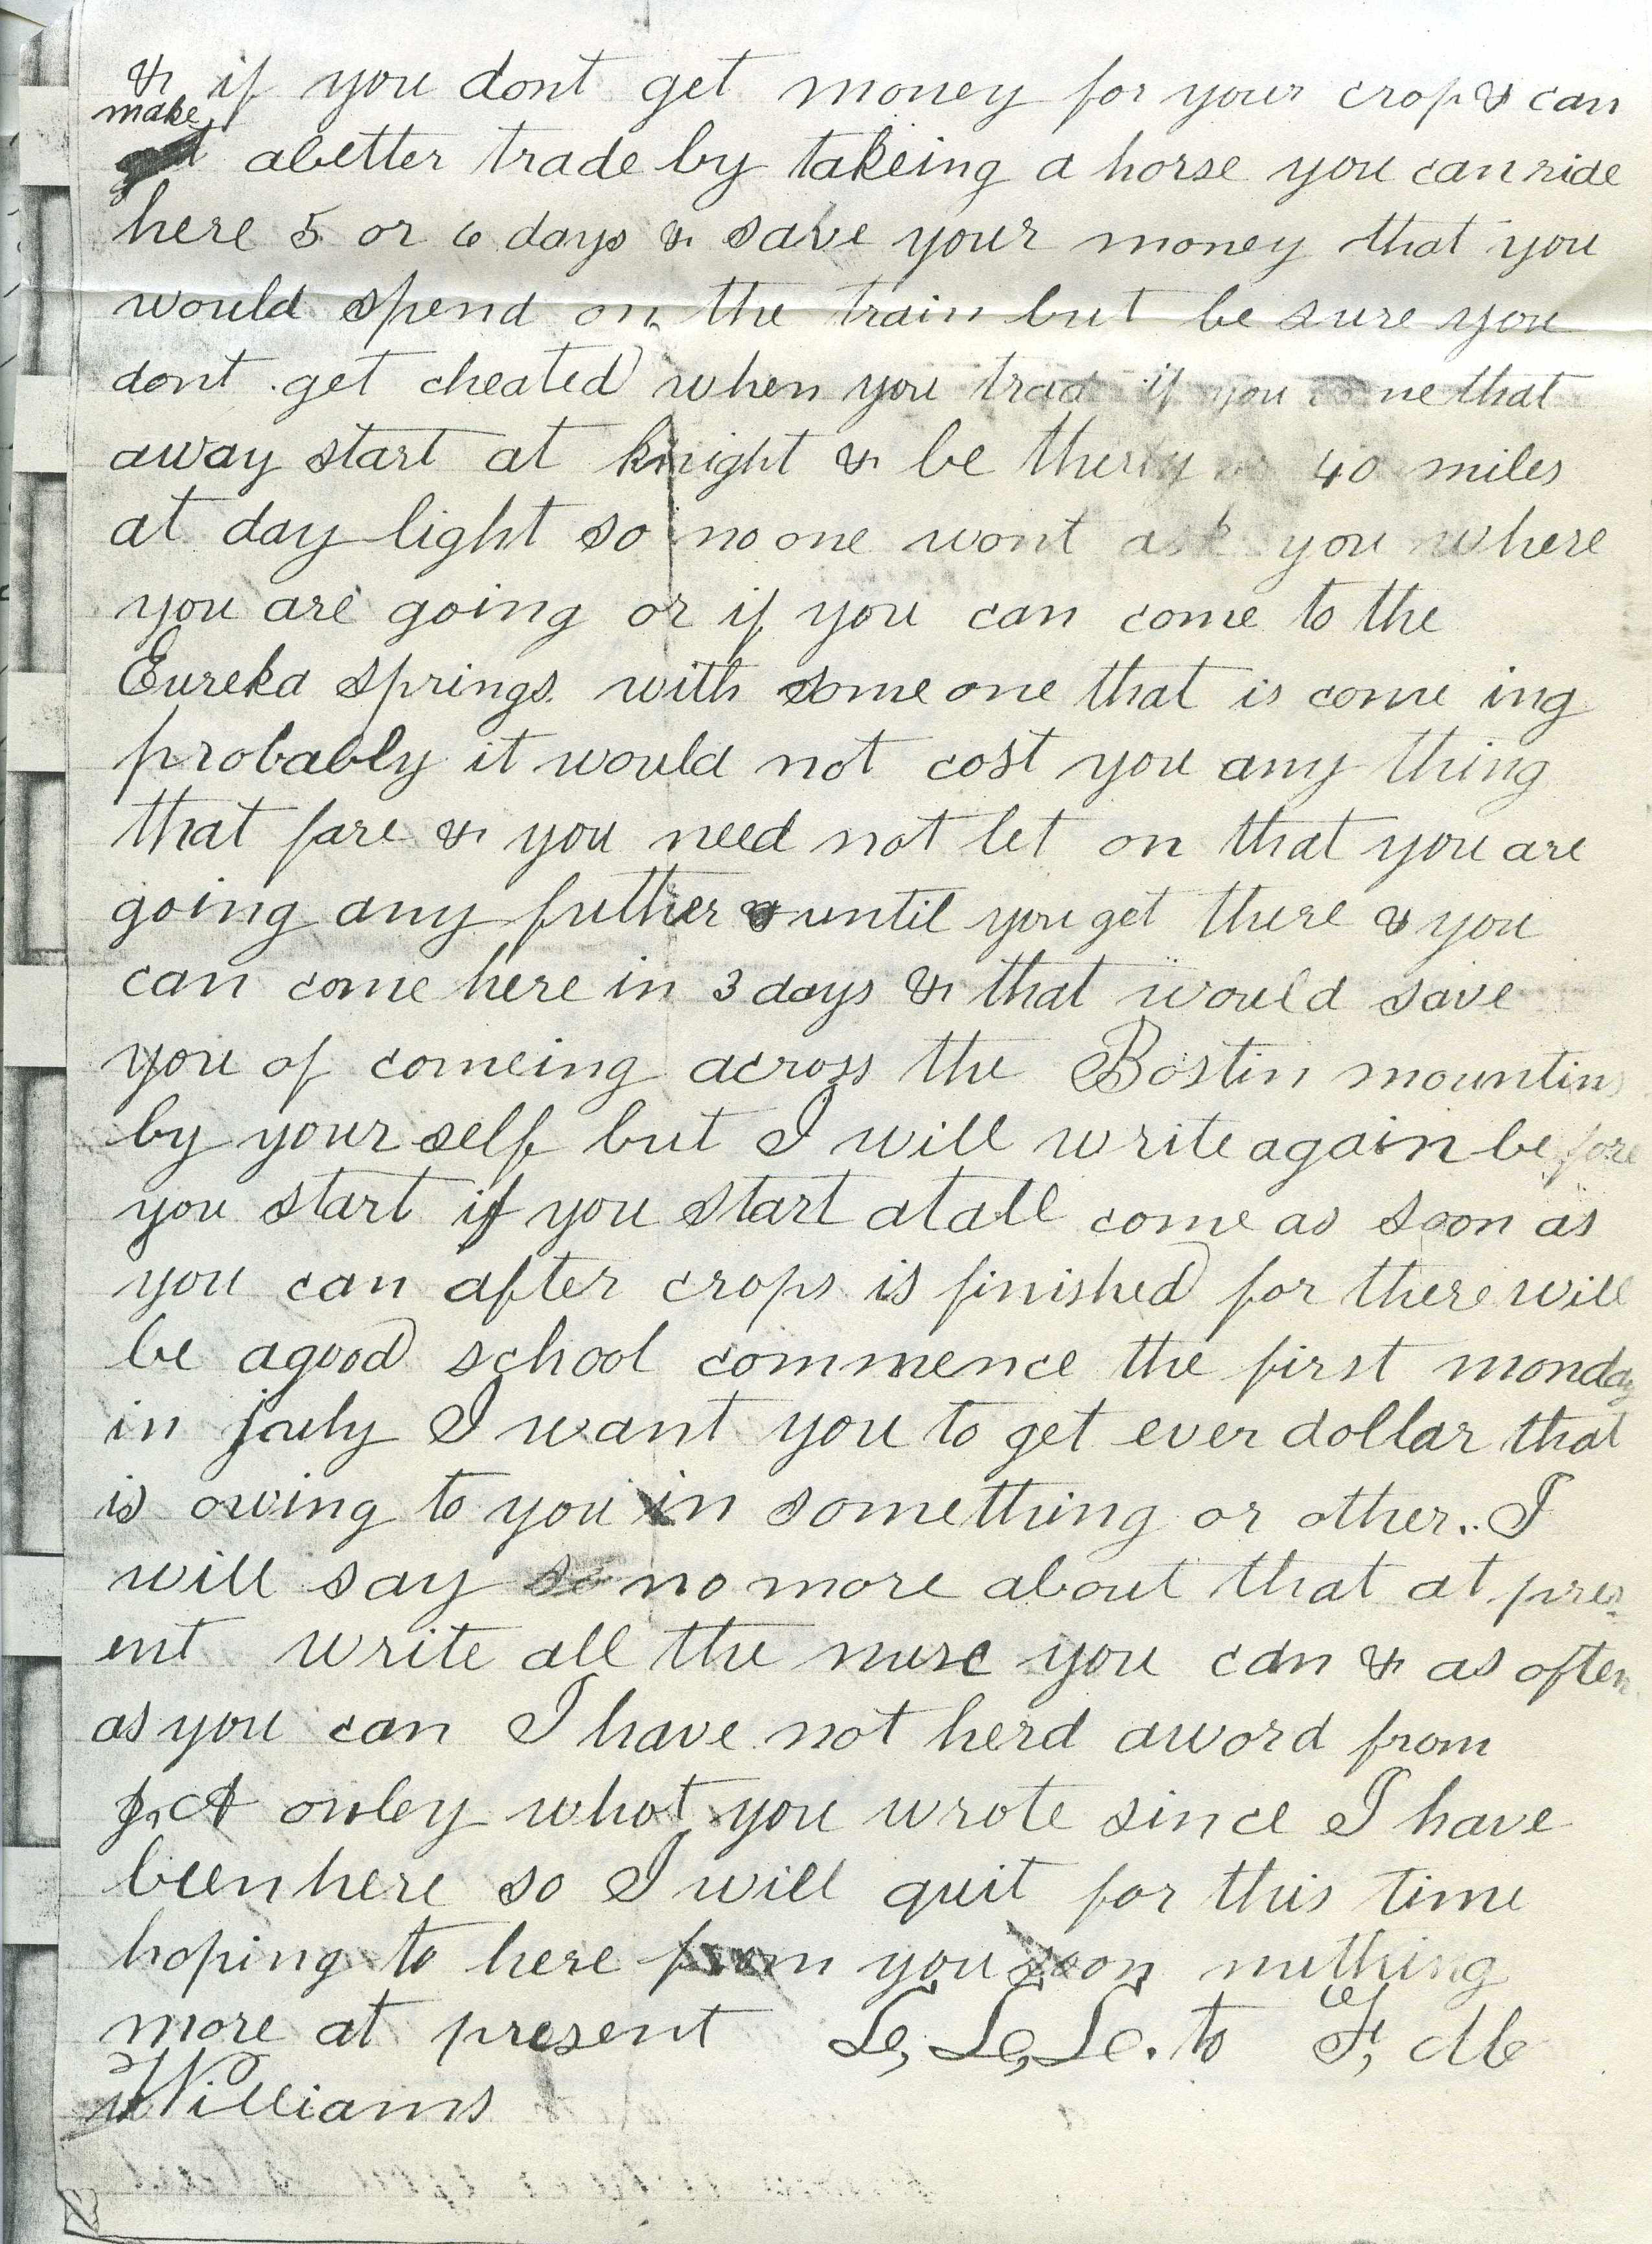 & if you dont get money for your crop & can
make
abetter trade by takeing a horse you can ride
here 5 or 6 days & save your money that you
would spend on the train but be sure you
dont get cheated when you trad if you ne that
away start at knight & be 40 miles
at day light so no one wont ask you where
you are going or if you can come to the
Eureka springs. with some one that is come ing
probably it would not cost you any thing
that fare & you need not let on that you are
going any futher until you get there & you
can come here in 3 days & that would save
you of comeing across the Bostin mountins
by your self but I will write again before
you start if you start atall come as soon as
you can after crops is finished for there will
be agood school commence the first monday
in july I want you to get ever dollar that
is owing to you in something or other. I
will say no more about that at pres
ent write all the nuse you can & as often
as you can I have not herd aword from
onley what you wrote since I have
been here so I will quit for this time
hoping to here from you soon nuthing
more at present to
Williams